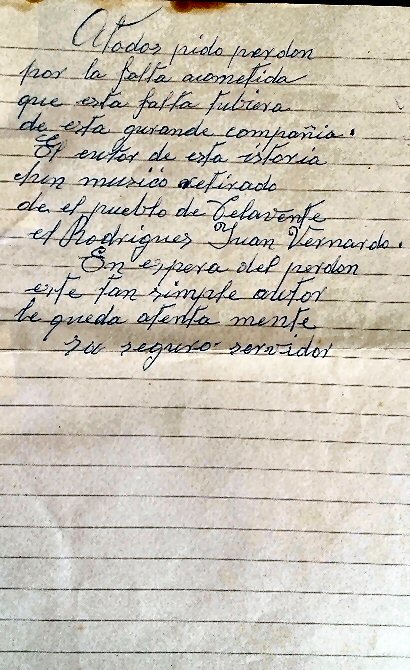 Atodos pido perdon
por la falta acometida
que esta falta tubiera
de esta gurande compañia.
El eutor de esta istoria
el un musico retirado
de el pueblo de Celavente
el Rodrigues Juan Vernardo.
En espera del perdon
este tan simple autor
le queda atenta mente
su seguro servidor